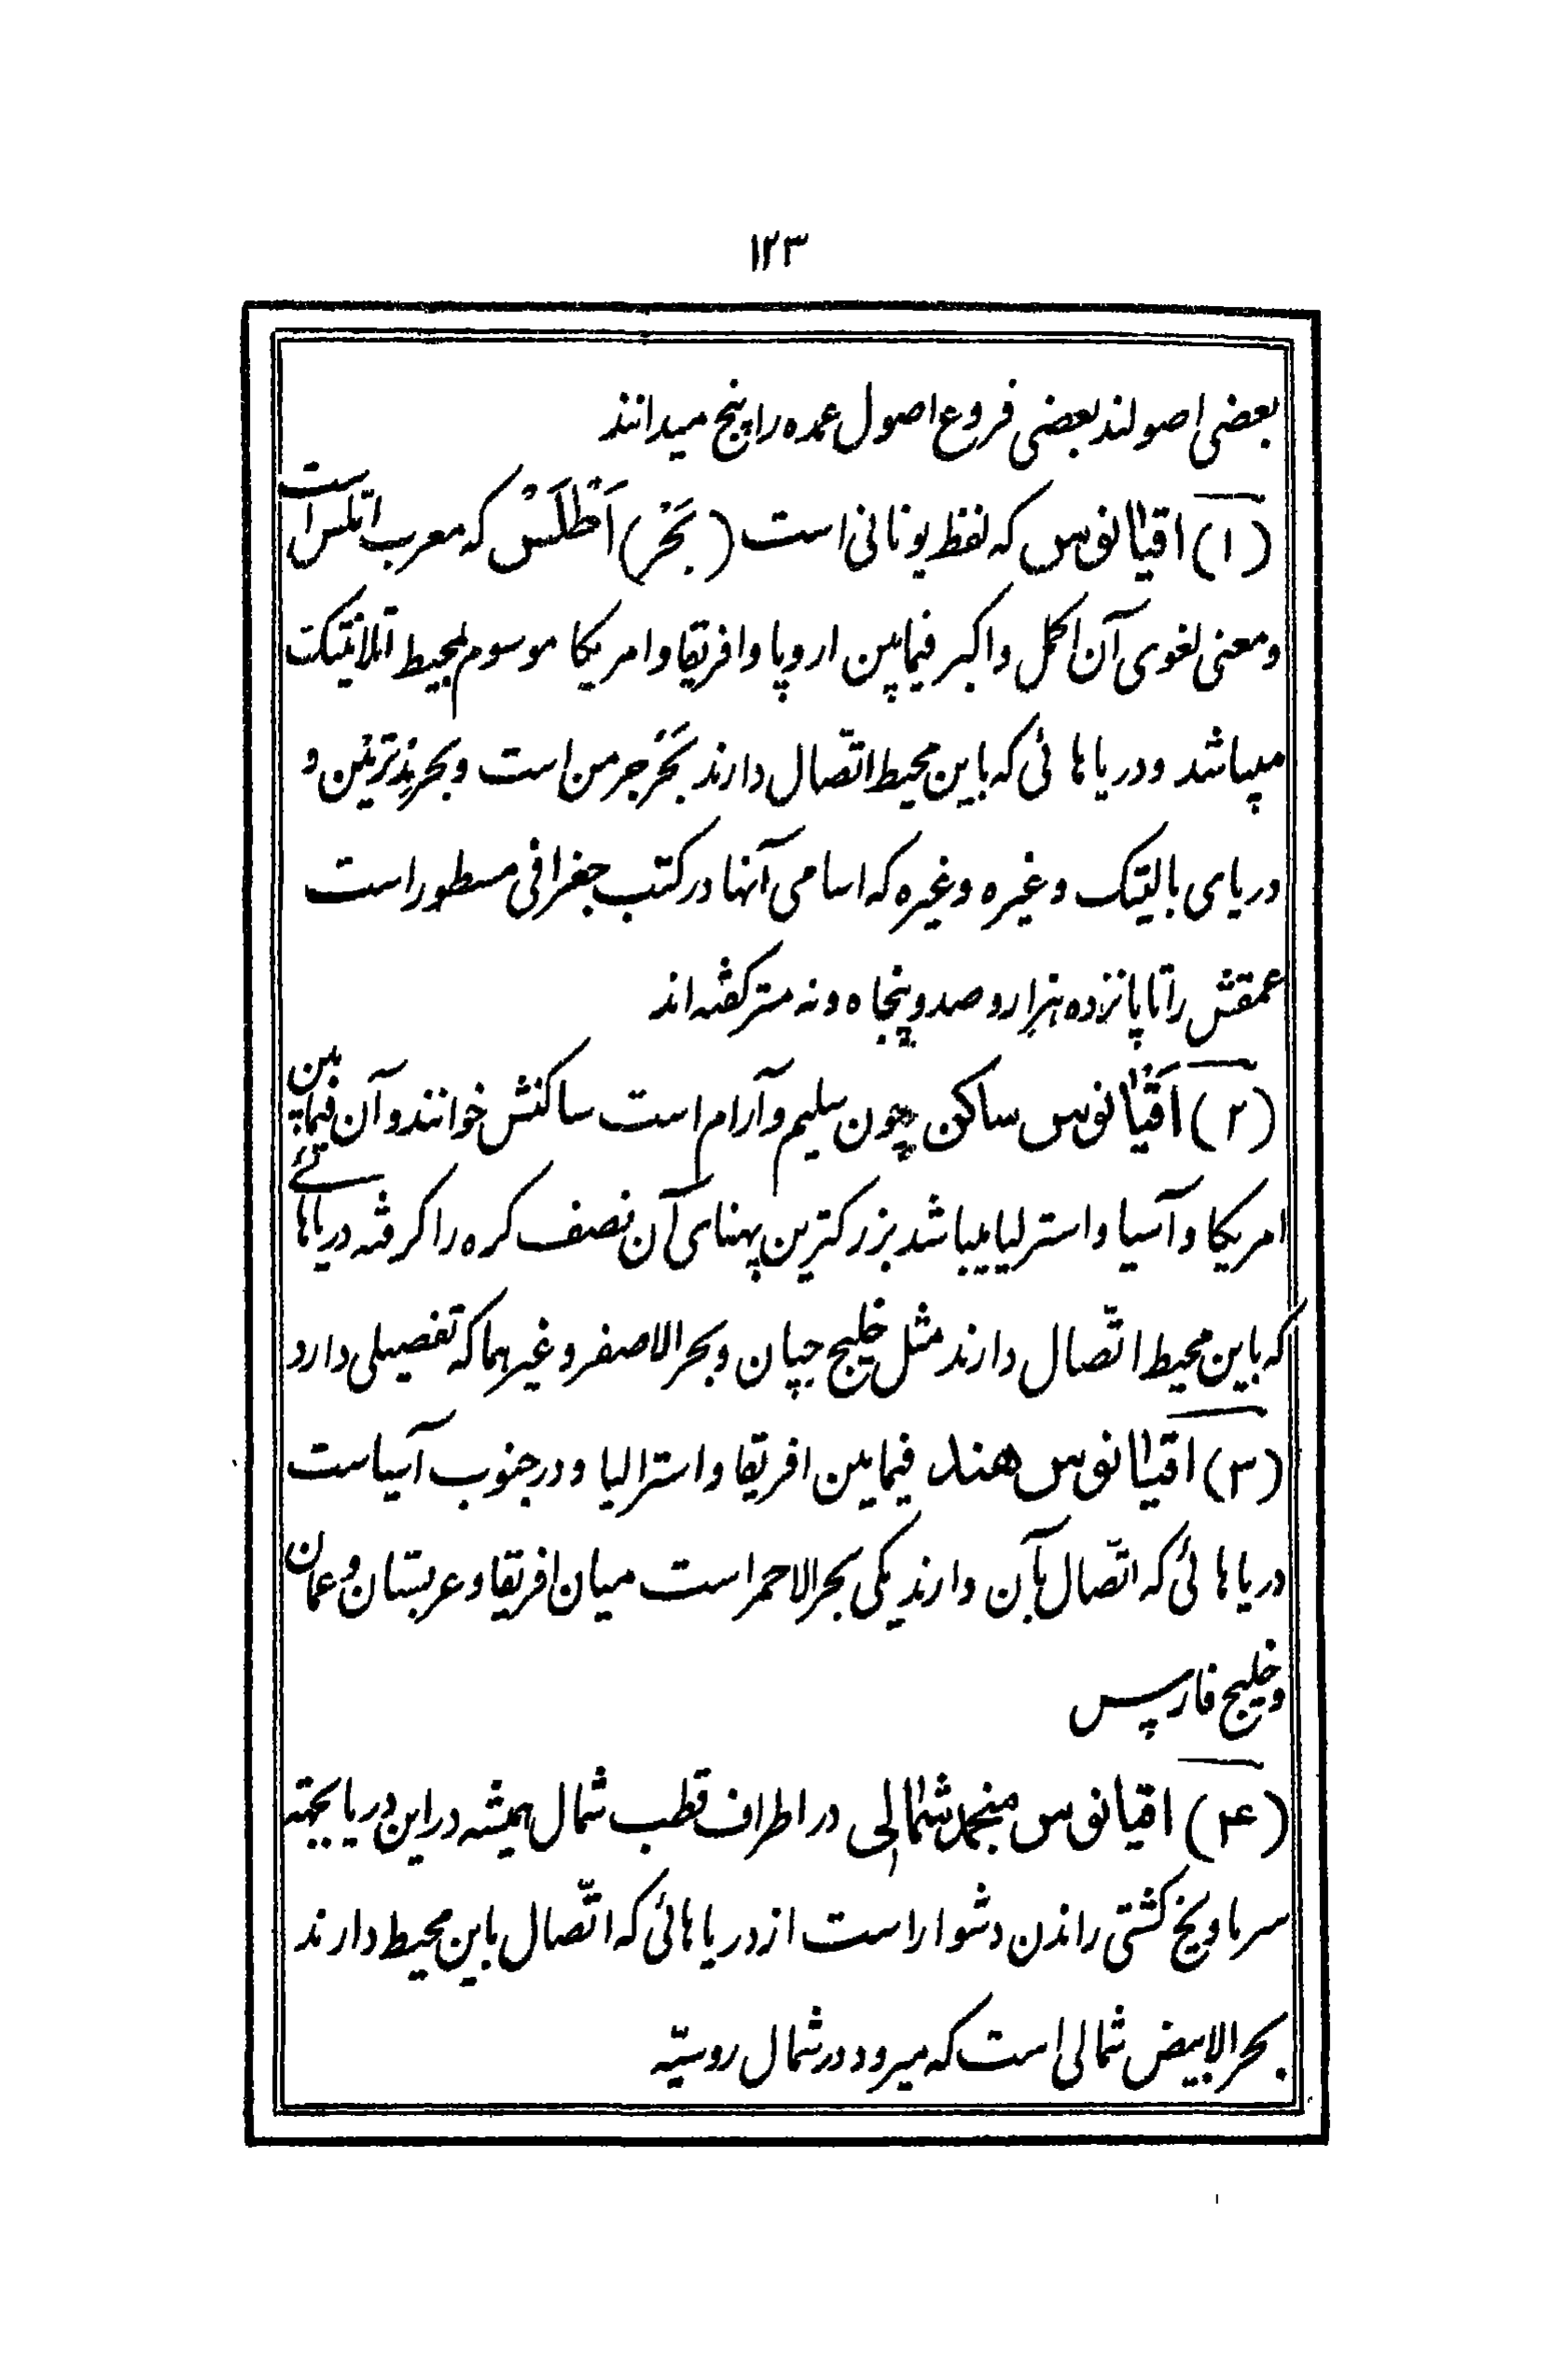 ۱۲۳
بعضی اصولند بعضی فروع اصول عمده را پنج میدانند
(۱) اقیانوس که لفظ یونانی است (بَحْر) اَطْلَسْ که معرب اتلس است
و معنی لغوی آن اکمل و اکبر فیمابین اروپا و افریقا و امریکا موسوم بمحیط اتلانتیک
میباشد و دریاهائی که باین محیط اتّصال دارند بَحْر جرمن است و بحر
دریای بالیتک وغیره وغیره که اسامی آنها در کتب جغرافی مسطور است
عمقش را تا پانزده هزار و صد و پنجاه و نه متر گفته اند
(۲) اَقیانوس ساکن چون سلیم و آرام است ساکنش خوانند و آن فیمابین
امریکا و آسیا و استرلیا میباشد بزرگترین پهنای آن نصف کره را گرفته دریاهائے
که باین محیط اتّصال دارند مثل خلیج جپان و بحر الاصفر و غیرهما که تفصیلی دارد
(۳) اقیانوس هند فیمابین افریقا و استرالیا و در جنوب آسیاست
دریاهائی که اتّصال بآن دارند یکی بحر الاحمر است میان افریقا و عربستان و عمان
و خلیج فارس
(۴) اقیانوس منجمد شمالی در اطراف قطب شمال همیشه در این دریا بجهته
سرما و یخ کشتی راندن دشوار است از دریاهائی که اتّصال باین محیط دارند
بحر الابیض شمالی است که میرود در شمال روسیّه